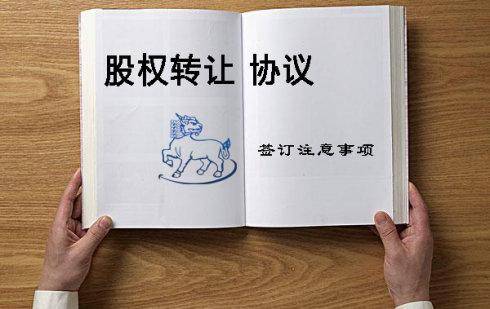 股权转让 协议
签订注意事项